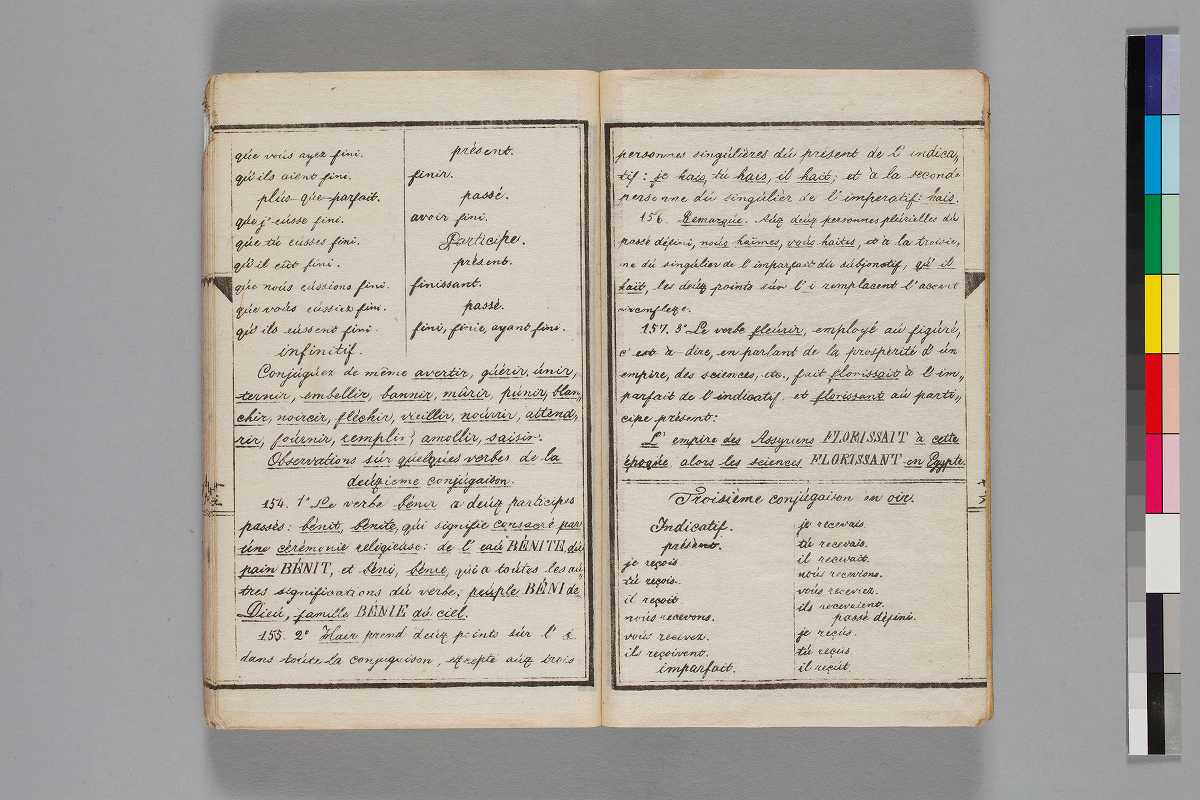 que vous ayez fini.
qu'ils aient fini.
plus-que-parfait.
que j'eusse fini.
que tu eusses fini.
qu'il eût fini.
que nous eussions fini.
que vous eussiez fini.
qu'ils eussent fini.
infinitif.
présent.
finir.
passé.
avoir fini.
Participe.
présent.
finissant.
passé.
fini, finie, ayant fini.
Conjuguez de même avertir, guérir, unir,
ternir, embellir, bannir, mûrir, punir, blan,,
chir, noircir, fléchir, vieillir, nourrir, attend,,
rir, fournir, remplir, amollir, saisir.
Observations sur quelques verbes de la
deuxieme conjugaison.
154. 1° Le verbe bénir a deux participes
passés: bénit, bénite, qui signifie consacré par
une cérémonie religieuse: de l'eau BÉNITE, du
pain BÉNIT, et béni, bénie, qui a toutes les au,,
tres significations du verbe, peuple BÉNI de
Dieu, famille BÉNIE du ciel.
155. 2° Hair prend deux points sur l'i
dans toute la conjugaison, excepte aux trois
personnes singulières du présent de l'indica,,
tif: je hais, tu hais, il hait; et à la seconde
personne du singulier de l'imperatif: hais.
156. Remarque. Aux deux personnes plurielles du
passé défini, nous haïmes, vous haïtes, et à la troisie,,
me du singulier de l'imparfait du subjonctif, qu'il
haït, les deux points sur l'i remplacent l'accent
circonflexe.
157. 3° Le verbe fleurir, employé au figuré,
c'est à-dire, en parlant de la prospérité d'un
empire, des sciences, etc., fait florissait à l'im,,
parfait de l'indicatif et florissant au parti,,
cipe présent:
L'empire des Assyriens FLORISSAIT à cette
époque alors les sciences FLORISSANT en Egypte.
Troisième conjugaison en oir.
Indicatif.
présent.
je reçois
tu reçois.
il reçoit
nous recevons.
vous recevez.
ils reçoivent.
imparfait.
je recevais.
tu recevais.
il recevait.
nous recevions.
vous receviez.
ils recevaient.
passé défini.
je reçus.
tu reçus
il reçut